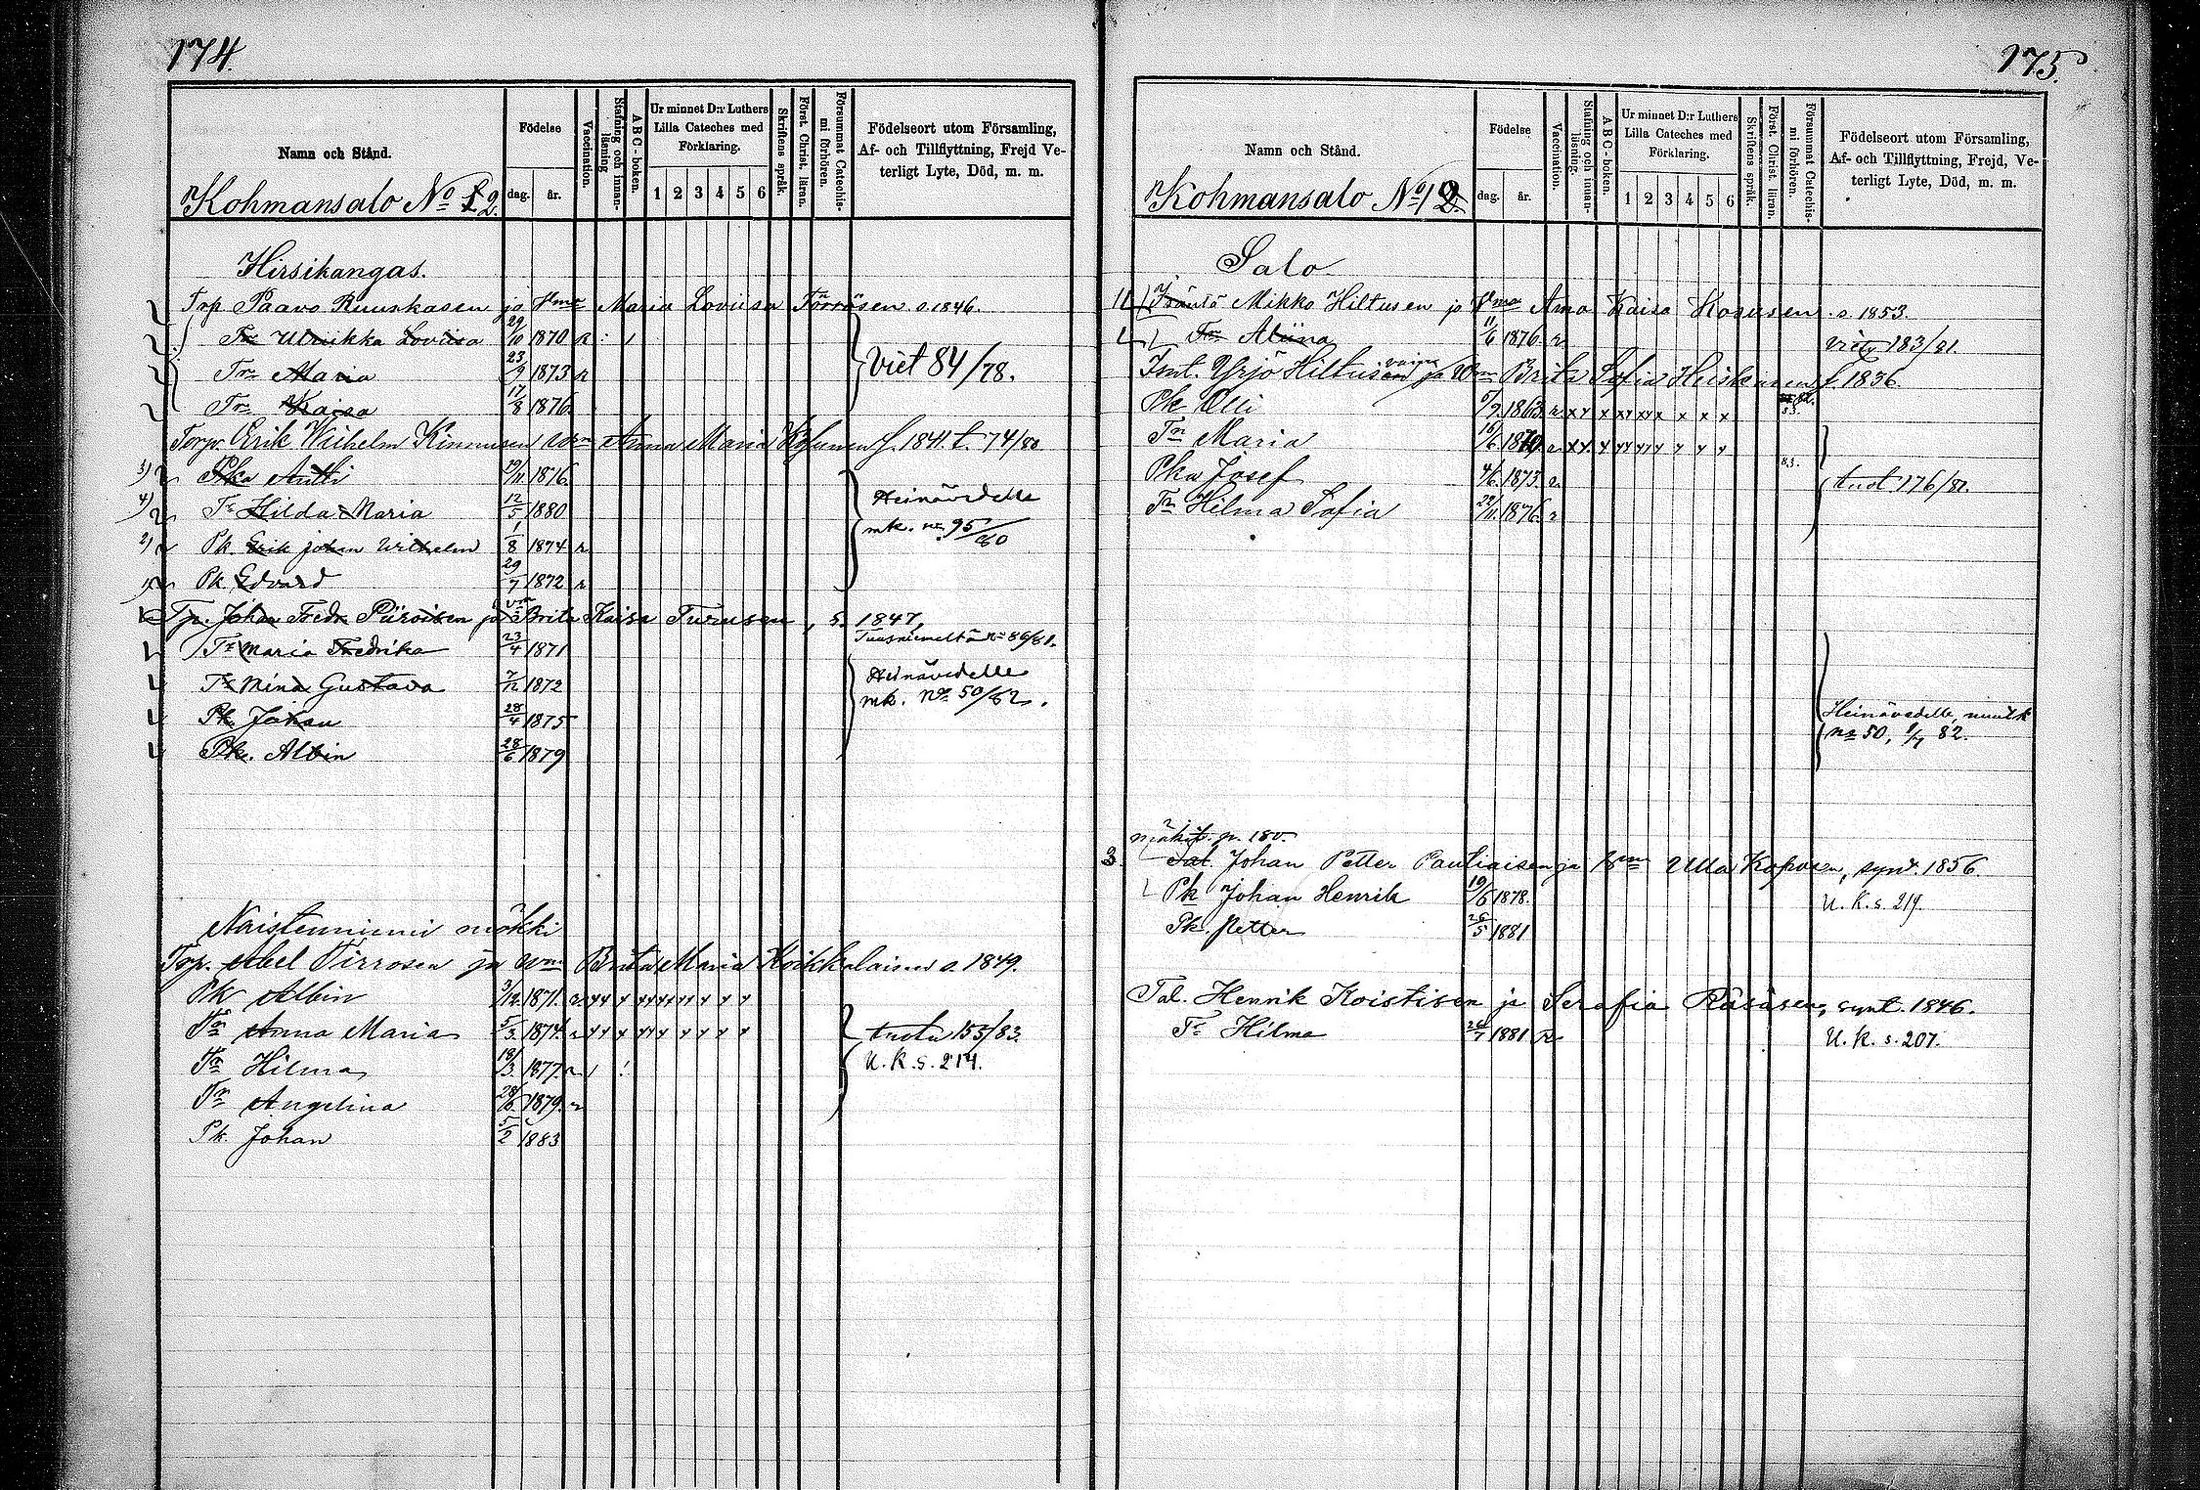 174.
Namn och Stånd.
Födelse
dag.
år.
Vaccination.
Stafning och innan-läsning
ABC-boken.
Ur minnet D:r Luthers Lilla Cateches med Förklaring.
1 2 3 4 5 6
Skriftens språk.
Först. Christ. läran.
Försummat Catechis-mi förhören.
Födelseort utom Församling,
Af- och Tillflyttning, Frejd Ve-
terligt Lyte, Död, m. m.
Kohmansalo No 2.
Hirsikangas.
Trp Paavo Ruuskasen ja Vmo Maria Loviisa Törrösen s. 1846.
Tr Ulriikka Loviisa 29/10 1870 r
Tr Maria 23/9 1873 r
Viet 84/78.
Tr Kaisa 17/8 1876
Torp. Erik Wilhelm Kinnusen Anna Maria f. 1841. t. 74/80
3) Pka Antti 1876
4) Tr Hilda Maria 12/5 1880
Heinävedelle
2) Pk. Erik johan Wilhelm 1/8 1874 r
mk. no 95/80
Pk. Edvard 29/7 1872 r
Tp. Johan Fredr. Piiroisen ja Vm Brita Kaisa Turusen, s. 1847,
Tuusniemeltä
Tr Maria Fredrika 23/4 1871
Tr Mina Gustava 7/12 1872
Heinävedelle
mk. No 50/82.
Pk. Johan 28/4 1875
Pk. Albin 28/6 1879
Naistenniemi mökki
Trp. Abel Tirrosen ja Wm Brita Maria Koikkalaisen s. 1849.
Pk Albin 3/12 1871. r
Tr Anna Maria 5/3 1874. r
tuotu 153/83.
Tr Hilma 18/3 1877 r
U. K. s. 214.
Tr Angelina 1879. r
Pk. Johan 5/2 1883
175.
Namn och Stånd.
Födelse
dag.
år.
Vaccination.
Stafning och innan-läsning.
ABC-boken.
Ur minnet D:r Luthers Lilla Cateches med Förklaring.
1 2 3 4 5 6
Skriftens språk.
Först. Christ. läran.
Försummat Catechis-mi förhören.
Födelseort utom Församling,
Af- och Tillflyttning, Frejd, Ve-
terligt Lyte, Död, m. m.
Kohmansalo No 2.
Salo
Mikko Hiltusen ja Vmo Anna Kaisa Kosusen s. 1853.
Tr Aliina 11/6 1876. r
viety 183/81.
Yrjö Hiltusen vaina ja Brita Sofia Heiskanen f. 1836.
Pk Olli 1863. r
Tr Maria 16/6 r
Pka Josef 4/6. 1873. r
tuot 176/81.
Tr Hilma Sofia 1876. r
Heinävedelle, muutk
no 50, 82.
p. 180.
3. Johan Petter Pauliaisen ja Vm Ulla Koposen, synt. 1856.
Pk Johan Henrik 19/6 1878.
U. K. s. 219.
Pk. Petter 26/5 1881
Tal. Henrik Koistisen ja Serafia Räsäsen, synt. 1846.
Tr Hilma 26/7 1881. R
U. K. s. 207.